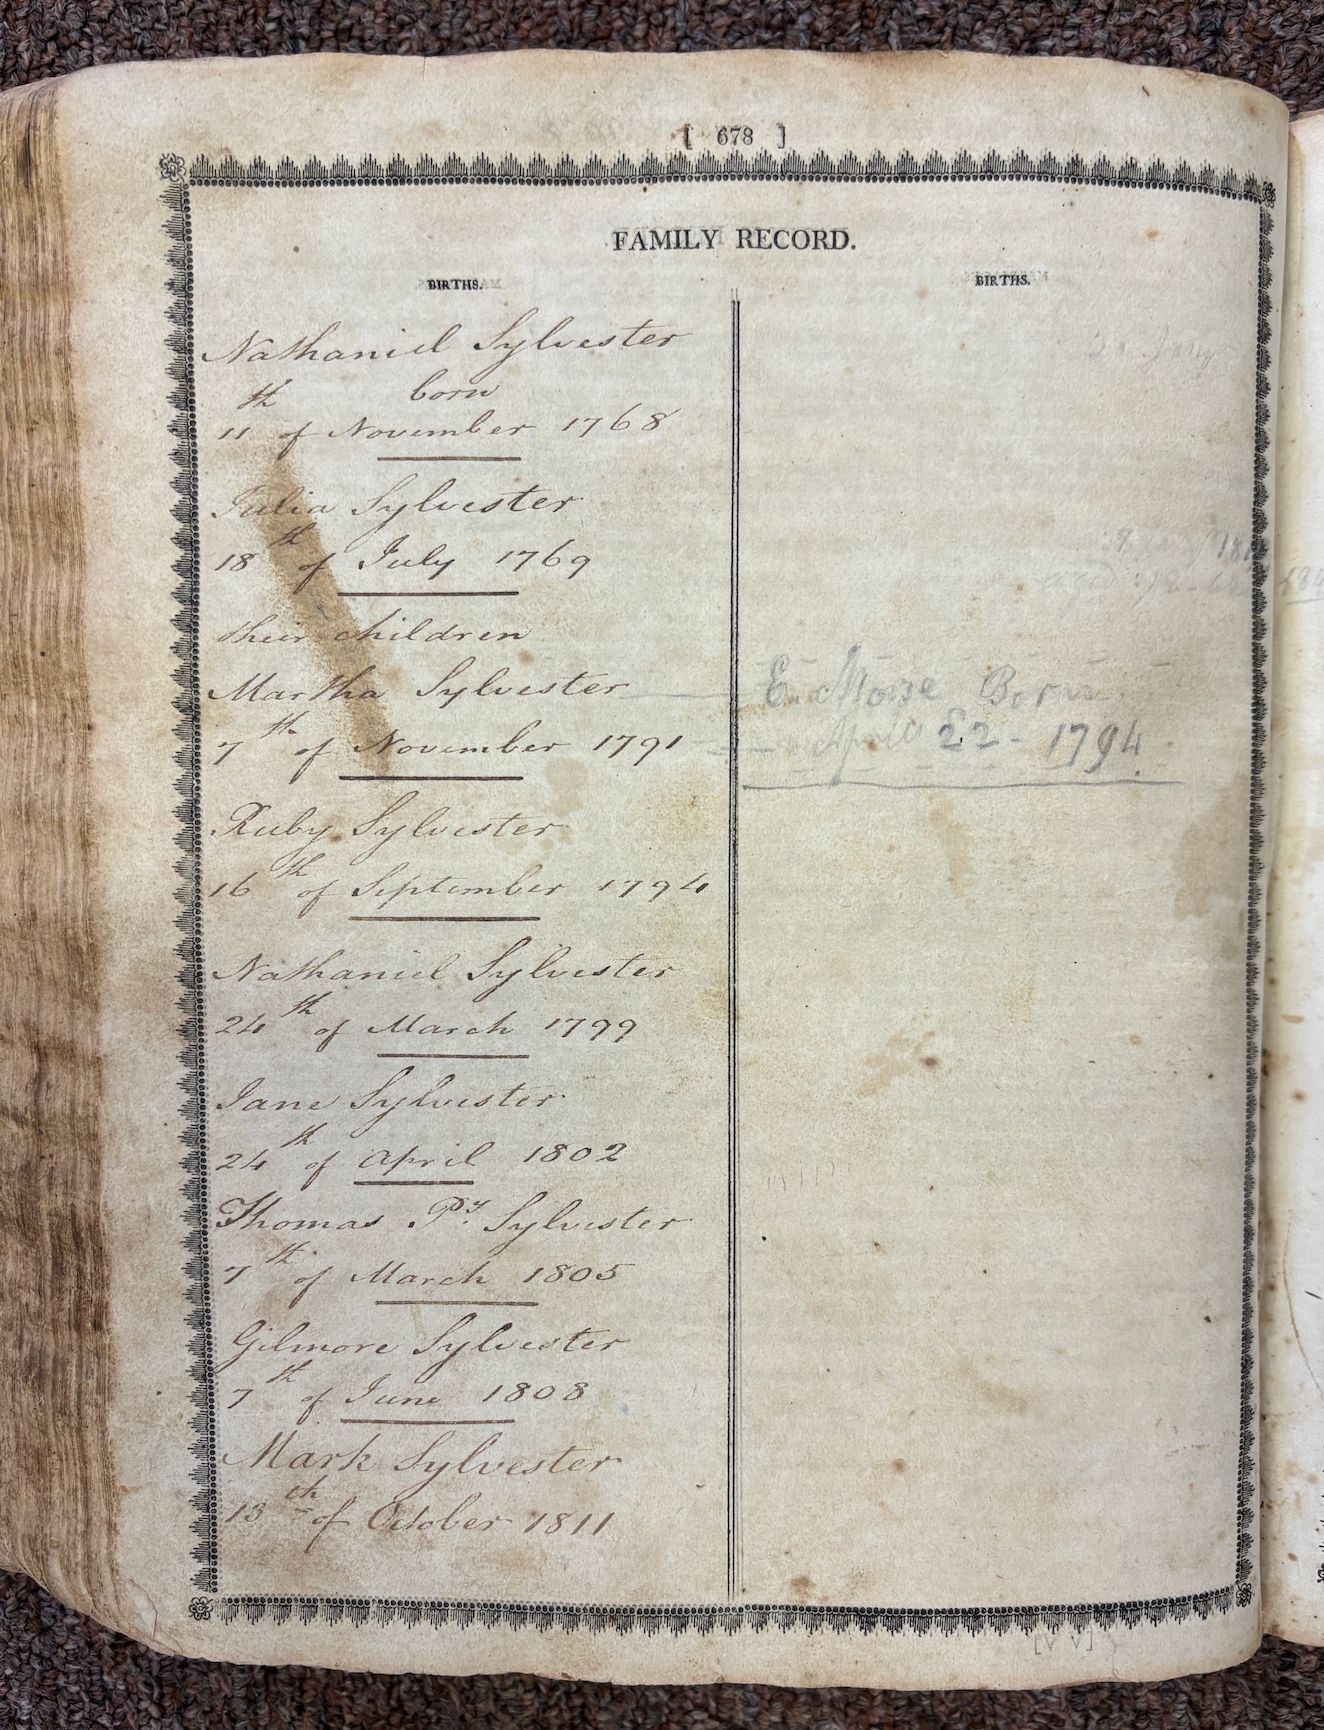 [ 678 ]
FAMILY RECORD.
BIRTHS.
Nathaniel Sylvester
born
11th of November 1768
Julia Sylvester
18th of July 1769
their children
Martha Sylvester
7th of November 1791
Ruby Sylvester
16th of September 1794
Nathaniel Sylvester
24th of March 1799
Jane Sylvester
24th of April 1802
Thomas Py. Sylvester
7th of March 1805
Gilmore Sylvester
7th of June 1808
Mark Sylvester
13th of October 1811
BIRTHS.
E. Born
April 22 - 1794